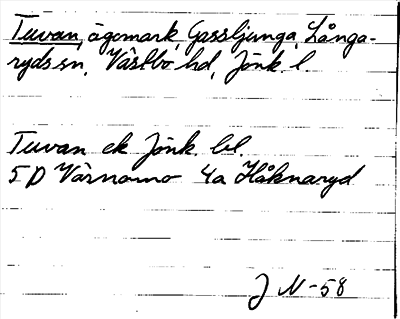 Tuvan, ägomark, Gassljunga, Långa-
ryds sn, Västbo hd, Jönk. l.
Tuvan ek Jönk. bl.
5 D Värnamo 4a Håknaryd
J N-58